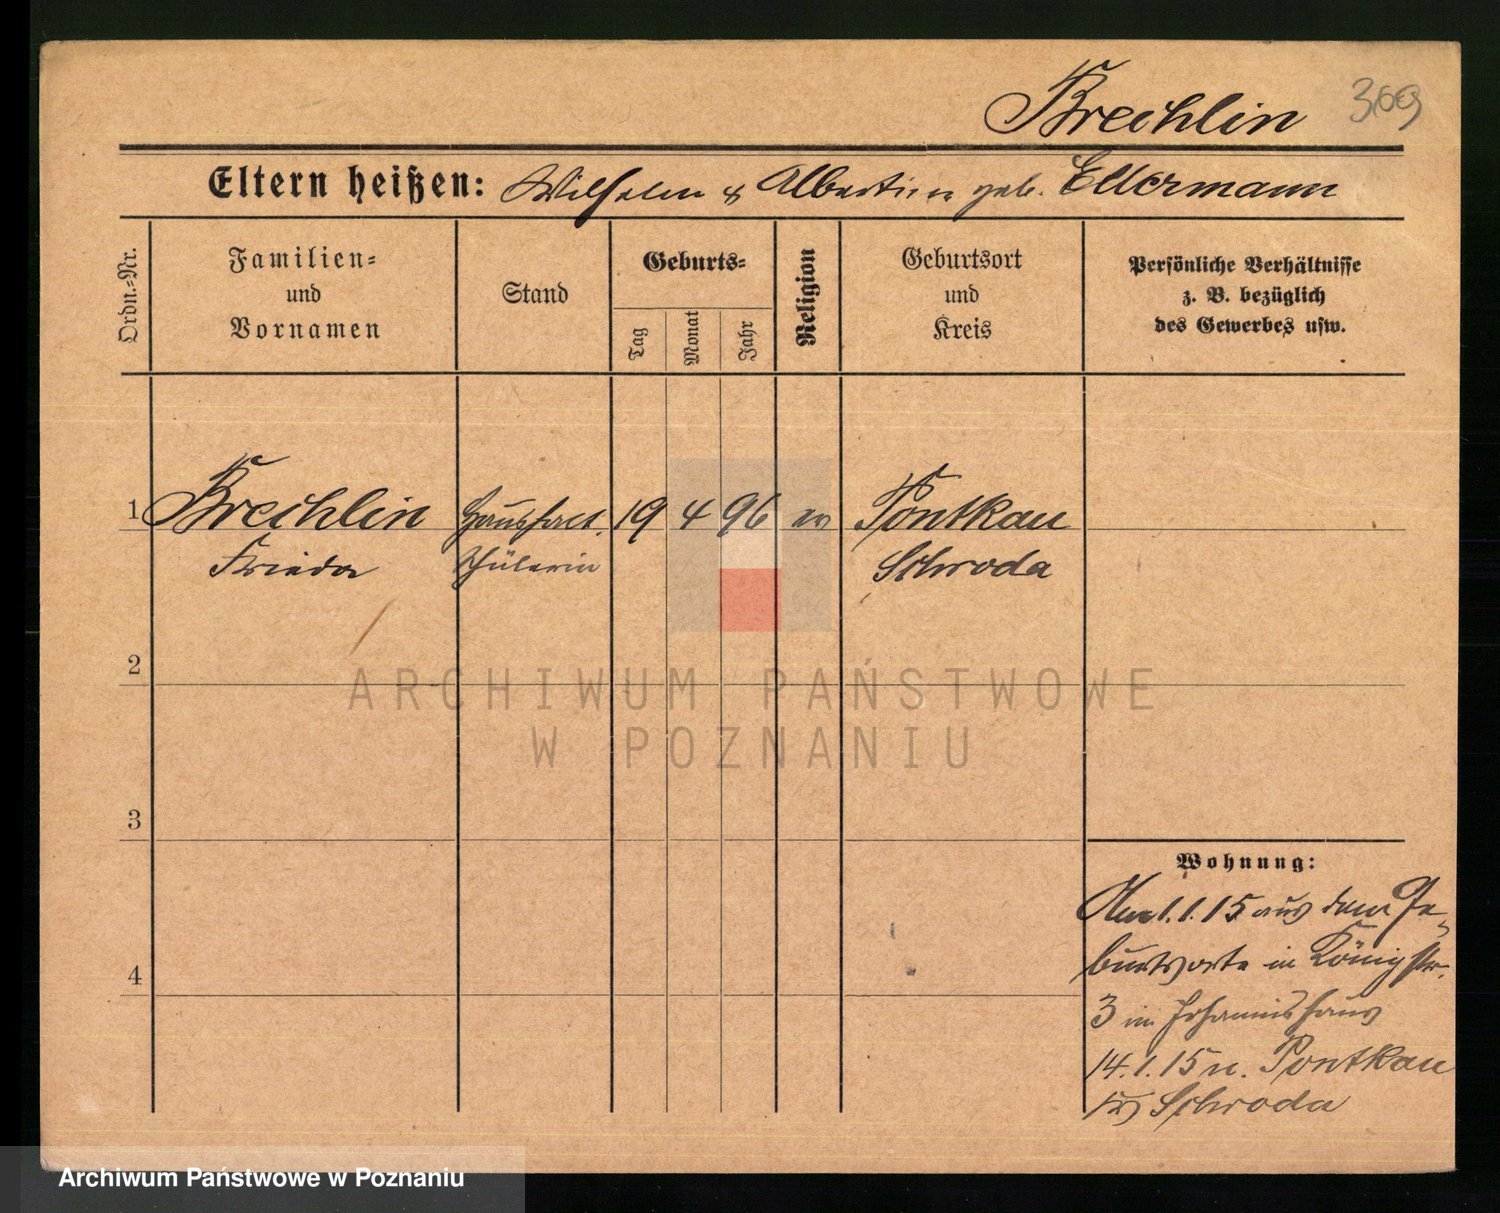 Brechlin 369
Eltern heißen: Wilhelm & Albertine geb. Ellermann
Ordn.-Nr.
Familien-
und
Vornamen
Stand
Geburts-
Tag
Monat
Jahr
Religion
Geburtsort
und
Kreis
Persönliche Verhältnisse
z. B. bezüglich
des Gewerbes usw.
1 Brechlin Haushalt. 19 4 96 ev Pontkau
Frieda schülerin Schroda
2
ARCHIWUM PAŃSTWOWE
W POZNANIU
3
Wohnung:
Am 1.1.15 aus dem Ge-
burtsorte in Königstr.
4
3 im Johannishaus
14.1.15 n. Pontkau
Kr Schroda
Archiwum Państwowe w Poznaniu